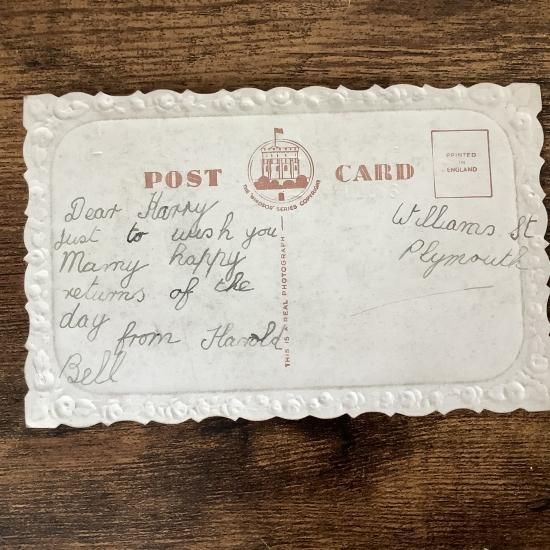 POST CARD
THE "WINDSOR" SERIES COPYRIGHT
PRINTED
IN
ENGLAND
Dear Harry
Just to wish you
Mamy happy
returns of the
day
from Harold
Bell
THIS IS A REAL PHOTOGRAPH
Williams St
Plymouth